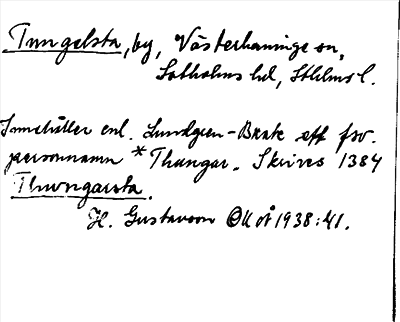 Tungelsta, by, Västerhaninge sn,
Sotholms hd, Sthlms l.
Innehåller enl. Lundgren-Brate ett fsv.
personnamn *Thungar. Skrives 1384
Thwngarsta.
H. Gustavson OUoÅ 1938:41.